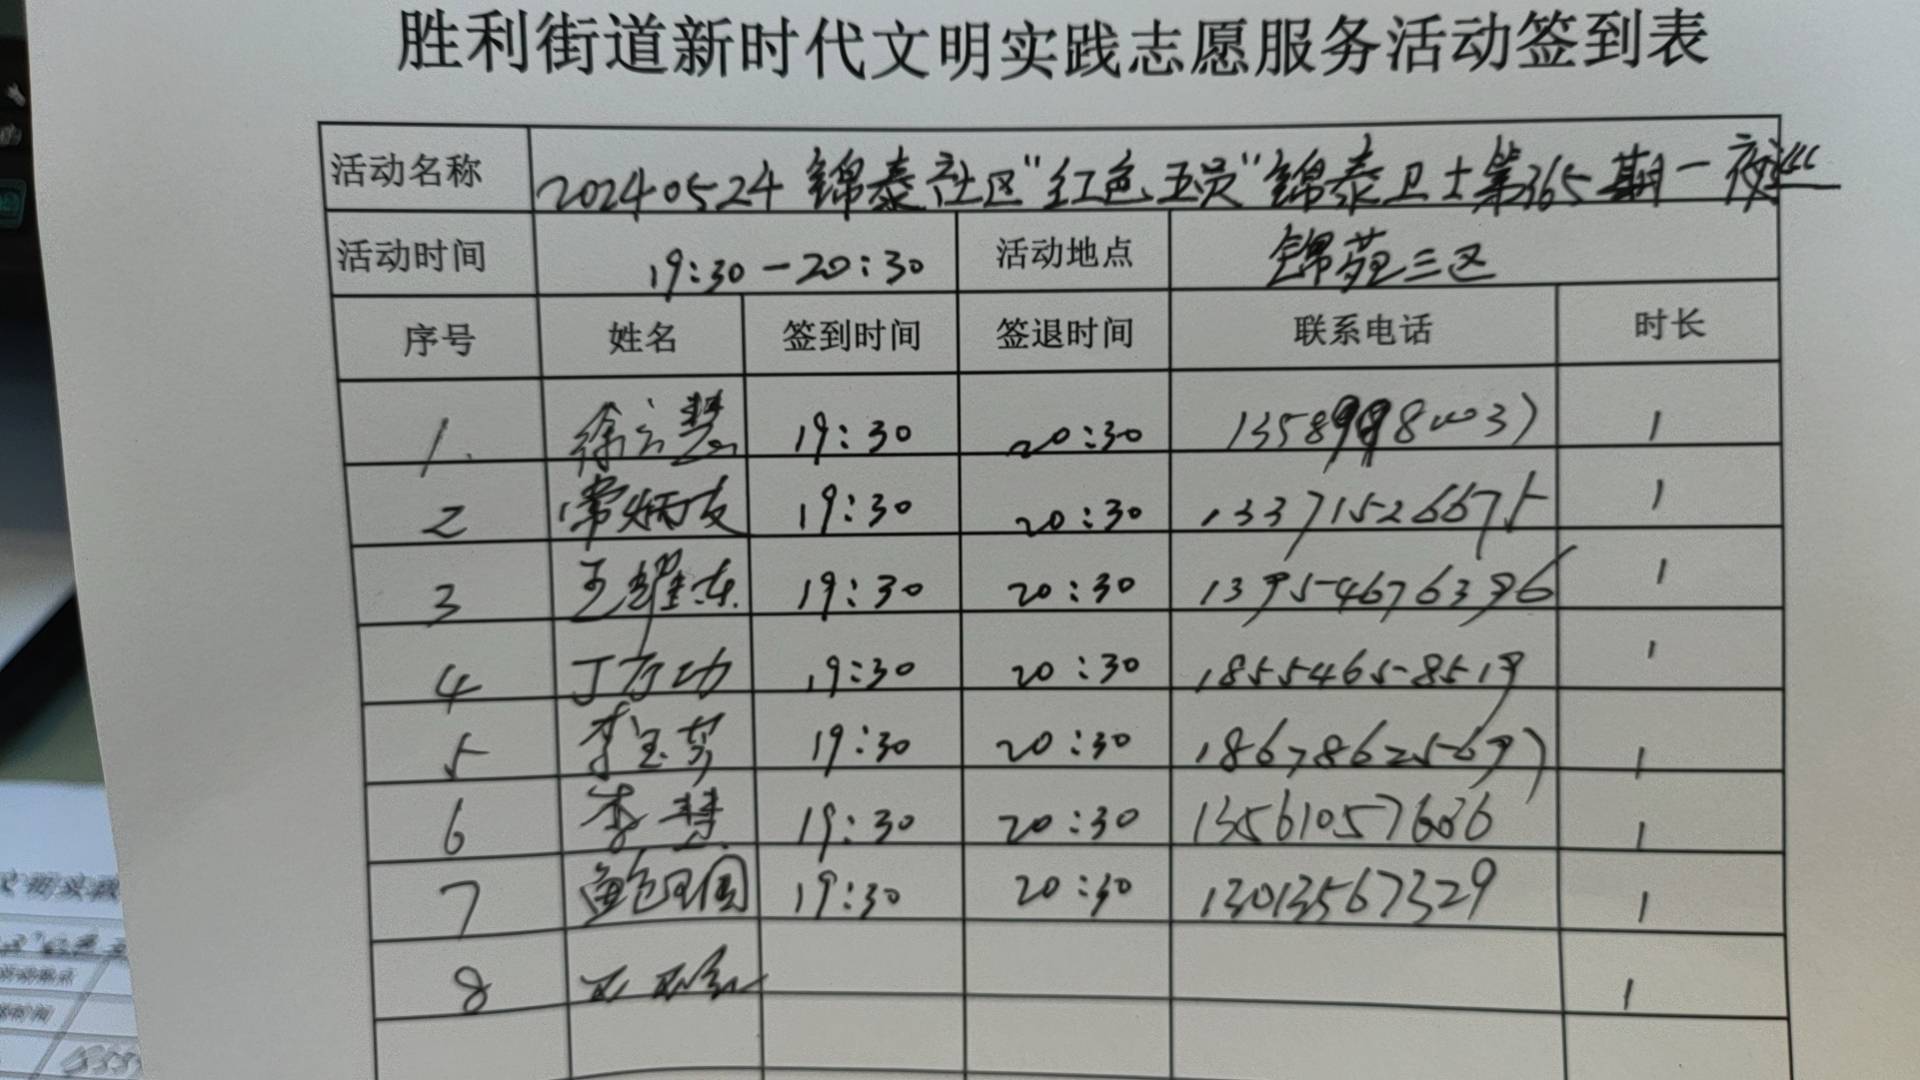 胜利街道新时代文明实践志愿服务活动签到表
活动名称 20240524锦泰社区"红色五员"锦泰卫士第365期一夜巡
活动时间 19:30-20:30 活动地点 锦苑三区
序号 姓名 签到时间 签退时间 联系电话 时长
1. 徐立慧 19:30 20:30 1
2 常炳友 19:30 20:30 13371526675 1
3 王耀东 19:30 20:30 13954676396 1
4 丁方功 19:30 20:30 18554658519 1
5 李宝芬 19:30 20:30 1
6 李慧 19:30 20:30 13561057686 1
7 19:30 20:30 13013567329 1
8 1